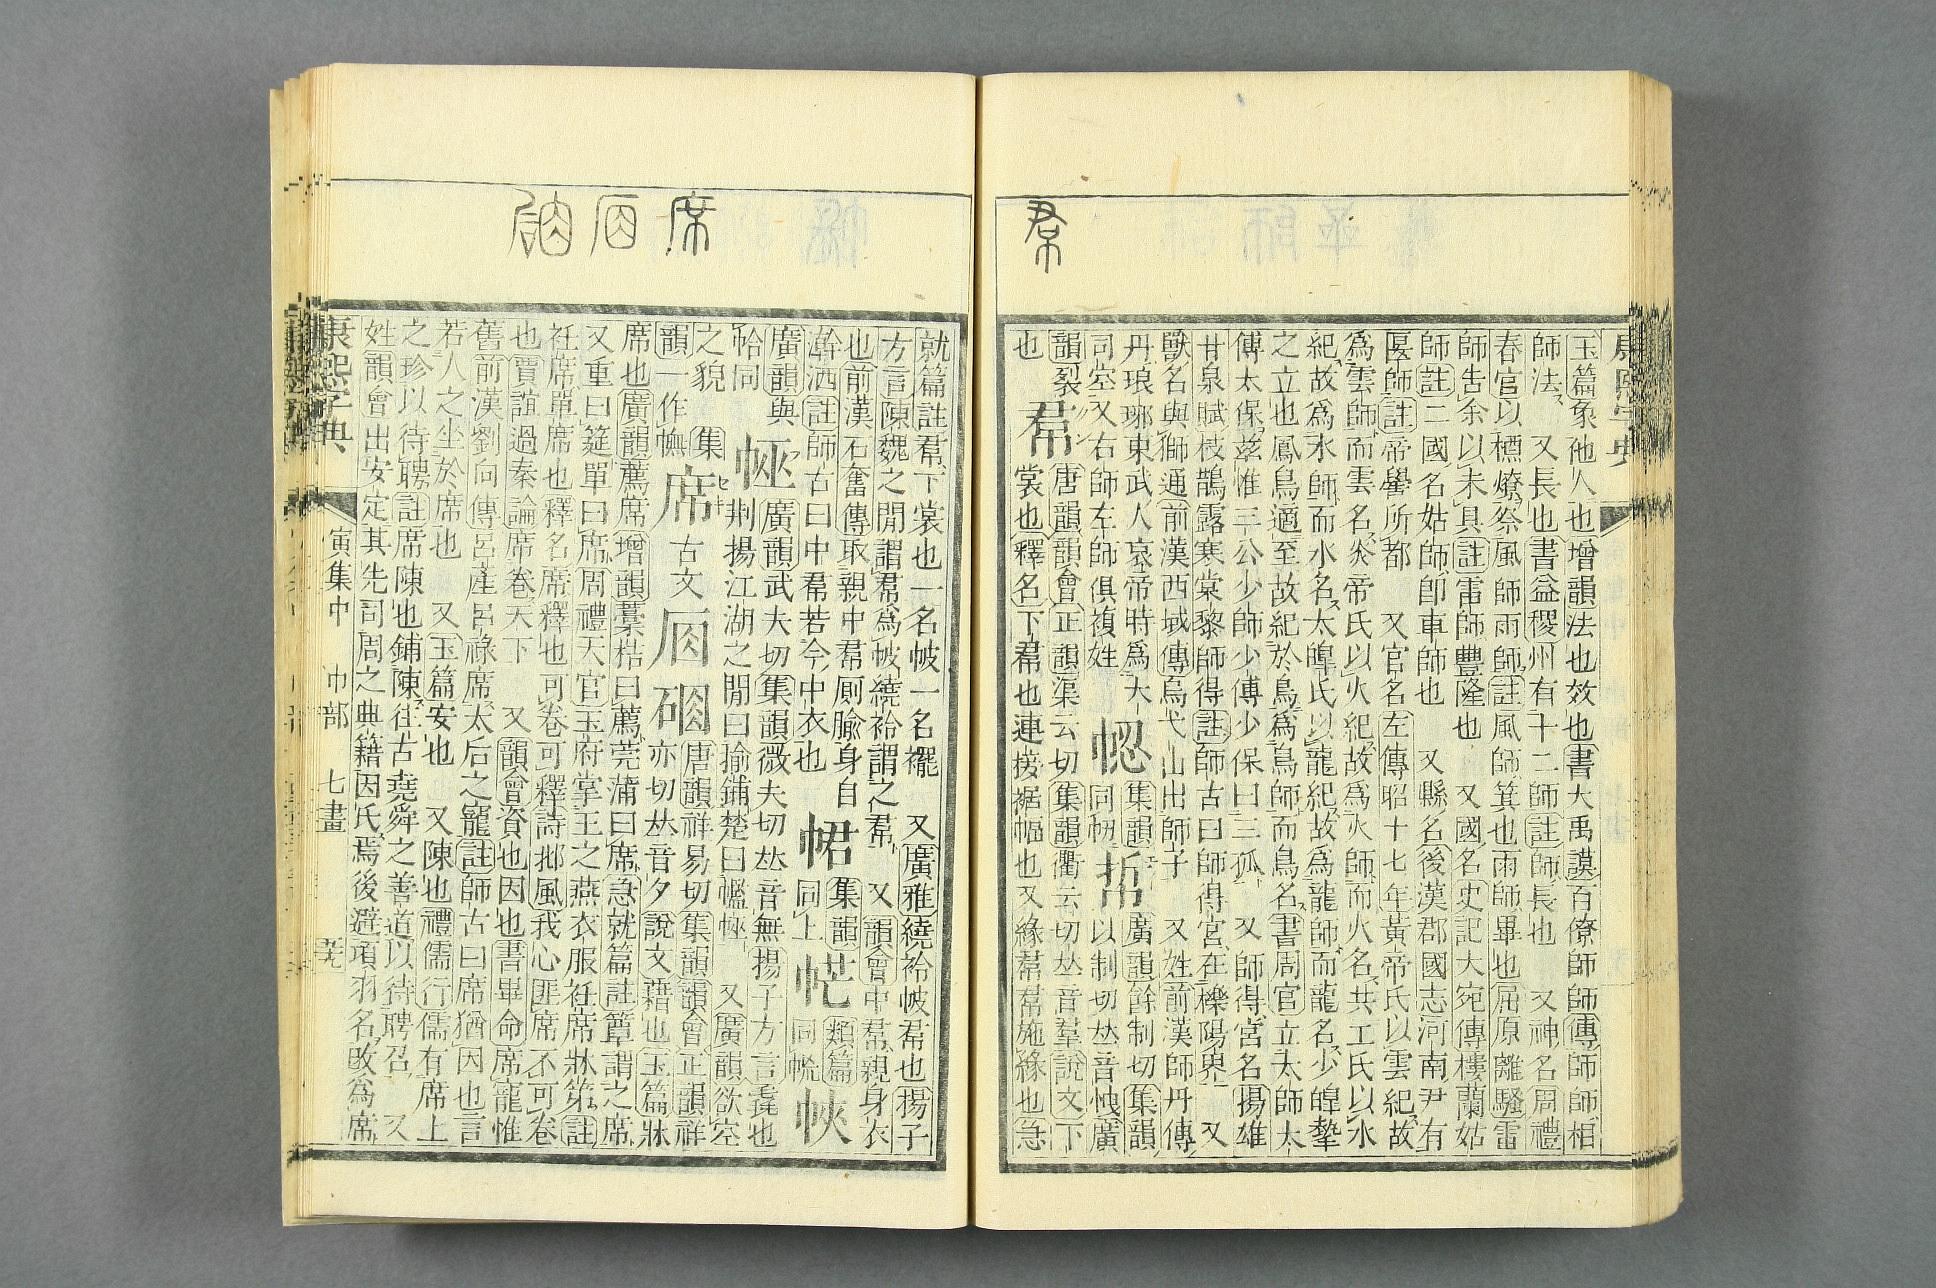 帬
玉篇象他人也增韻法也效也書大禹謨百僚師師傳師師相
師法又長也書益稷州有十二師註師長也又神名周禮
春官以槱燎祭風師雨師註風師箕也雨師畢也屈原離騷雷
師告余以未具註雷師豐隆也又國名史記大宛傳樓蘭姑
師註二國名姑師卽車師也又縣名後漢郡國志河南尹有
匽師註帝嚳所都又官名左傳昭十七年黃帝氏以雲紀故
爲雲師而雲名炎帝氏以火紀故爲火師而火名共工氏以水
紀故爲水師而水名太皥氏以龍紀故爲龍師而龍名少皥摯
之立也鳳鳥適至故紀於鳥爲鳥師而鳥名書周官立太師太
傅太保茲惟三公少師少傅少保曰三孤又師得宮名揚雄
甘泉賦枝鵲露寒棠黎師得註師古曰師得宮在櫟陽界又
獸名與獅通前漢西域傳烏弋山出師子又姓前漢師丹傳
丹琅琊東武人哀帝特爲大
司空又右師左師俱複姓
帨集韻同㠴
㡇廣韻餘制切集韻
以制切𠀤音曳廣
韻裂
也
帬唐韻韻會正韻渠云切集韻衢云切𠀤音羣說文下
裳也釋名下帬也連接裾幅也又緣帬帬施緣也急
席
就篇註帬下裳也一名帔一名襬又廣雅繞袊帔帬也揚子
方言陳魏之閒謂帬爲帔繞袊謂之帬又韻會中帬親身衣
也前漢石奮傳取親中帬厠牏身自
澣洒註師古曰中帬若今中衣也
帬集韻
同上
㡆類篇
同㡃
㡂
廣韻與
帢同
㡔廣韻武夫切集韻微夫切𠀤音無揚子方言毳也
荆揚江湖之閒曰揄鋪楚曰㡔又廣韻欲空
之貌集
韻一作幠
席古文唐韻祥易切集韻韻會正韻祥
亦切𠀤音夕說文藉也玉篇牀
席也廣韻薦席增韻藁秸曰薦莞蒲曰席急就篇註簟謂之席
又重曰筵單曰席周禮天官玉府掌王之燕衣服衽席牀第註
衽席單席也釋名席釋也可卷可釋詩邶風我心匪席不可卷
也賈誼過秦論席卷天下又韻會資也因也書畢命席寵惟
舊前漢劉向傳呂產呂祿席太后之寵註師古曰席猶因也言
若人之坐於席也又玉篇安也又陳也禮儒行儒有席上
之珍以待聘註席陳也鋪陳往古堯舜之善道以待聘召又
姓韻會出安定其先司周之典籍因氏焉後避項羽名改爲席
康熙字典
寅集中
巾部
七畫